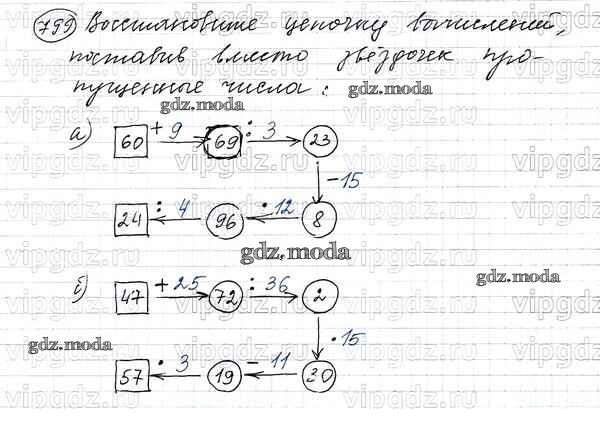 799 Восстановите цепочку вычислений,
поставив вместо звёздочек про-
пущенные числа:
gdz.moda
gdz.moda
а) 60 + 9 69 : 3 23
- 15
24 : 4 96 · 12 8
gdz.moda
gdz.moda
б) 47 + 25 72 : 36 2
· 15
gdz.moda
57 · 3 19 - 11 30
vipgdz.ru